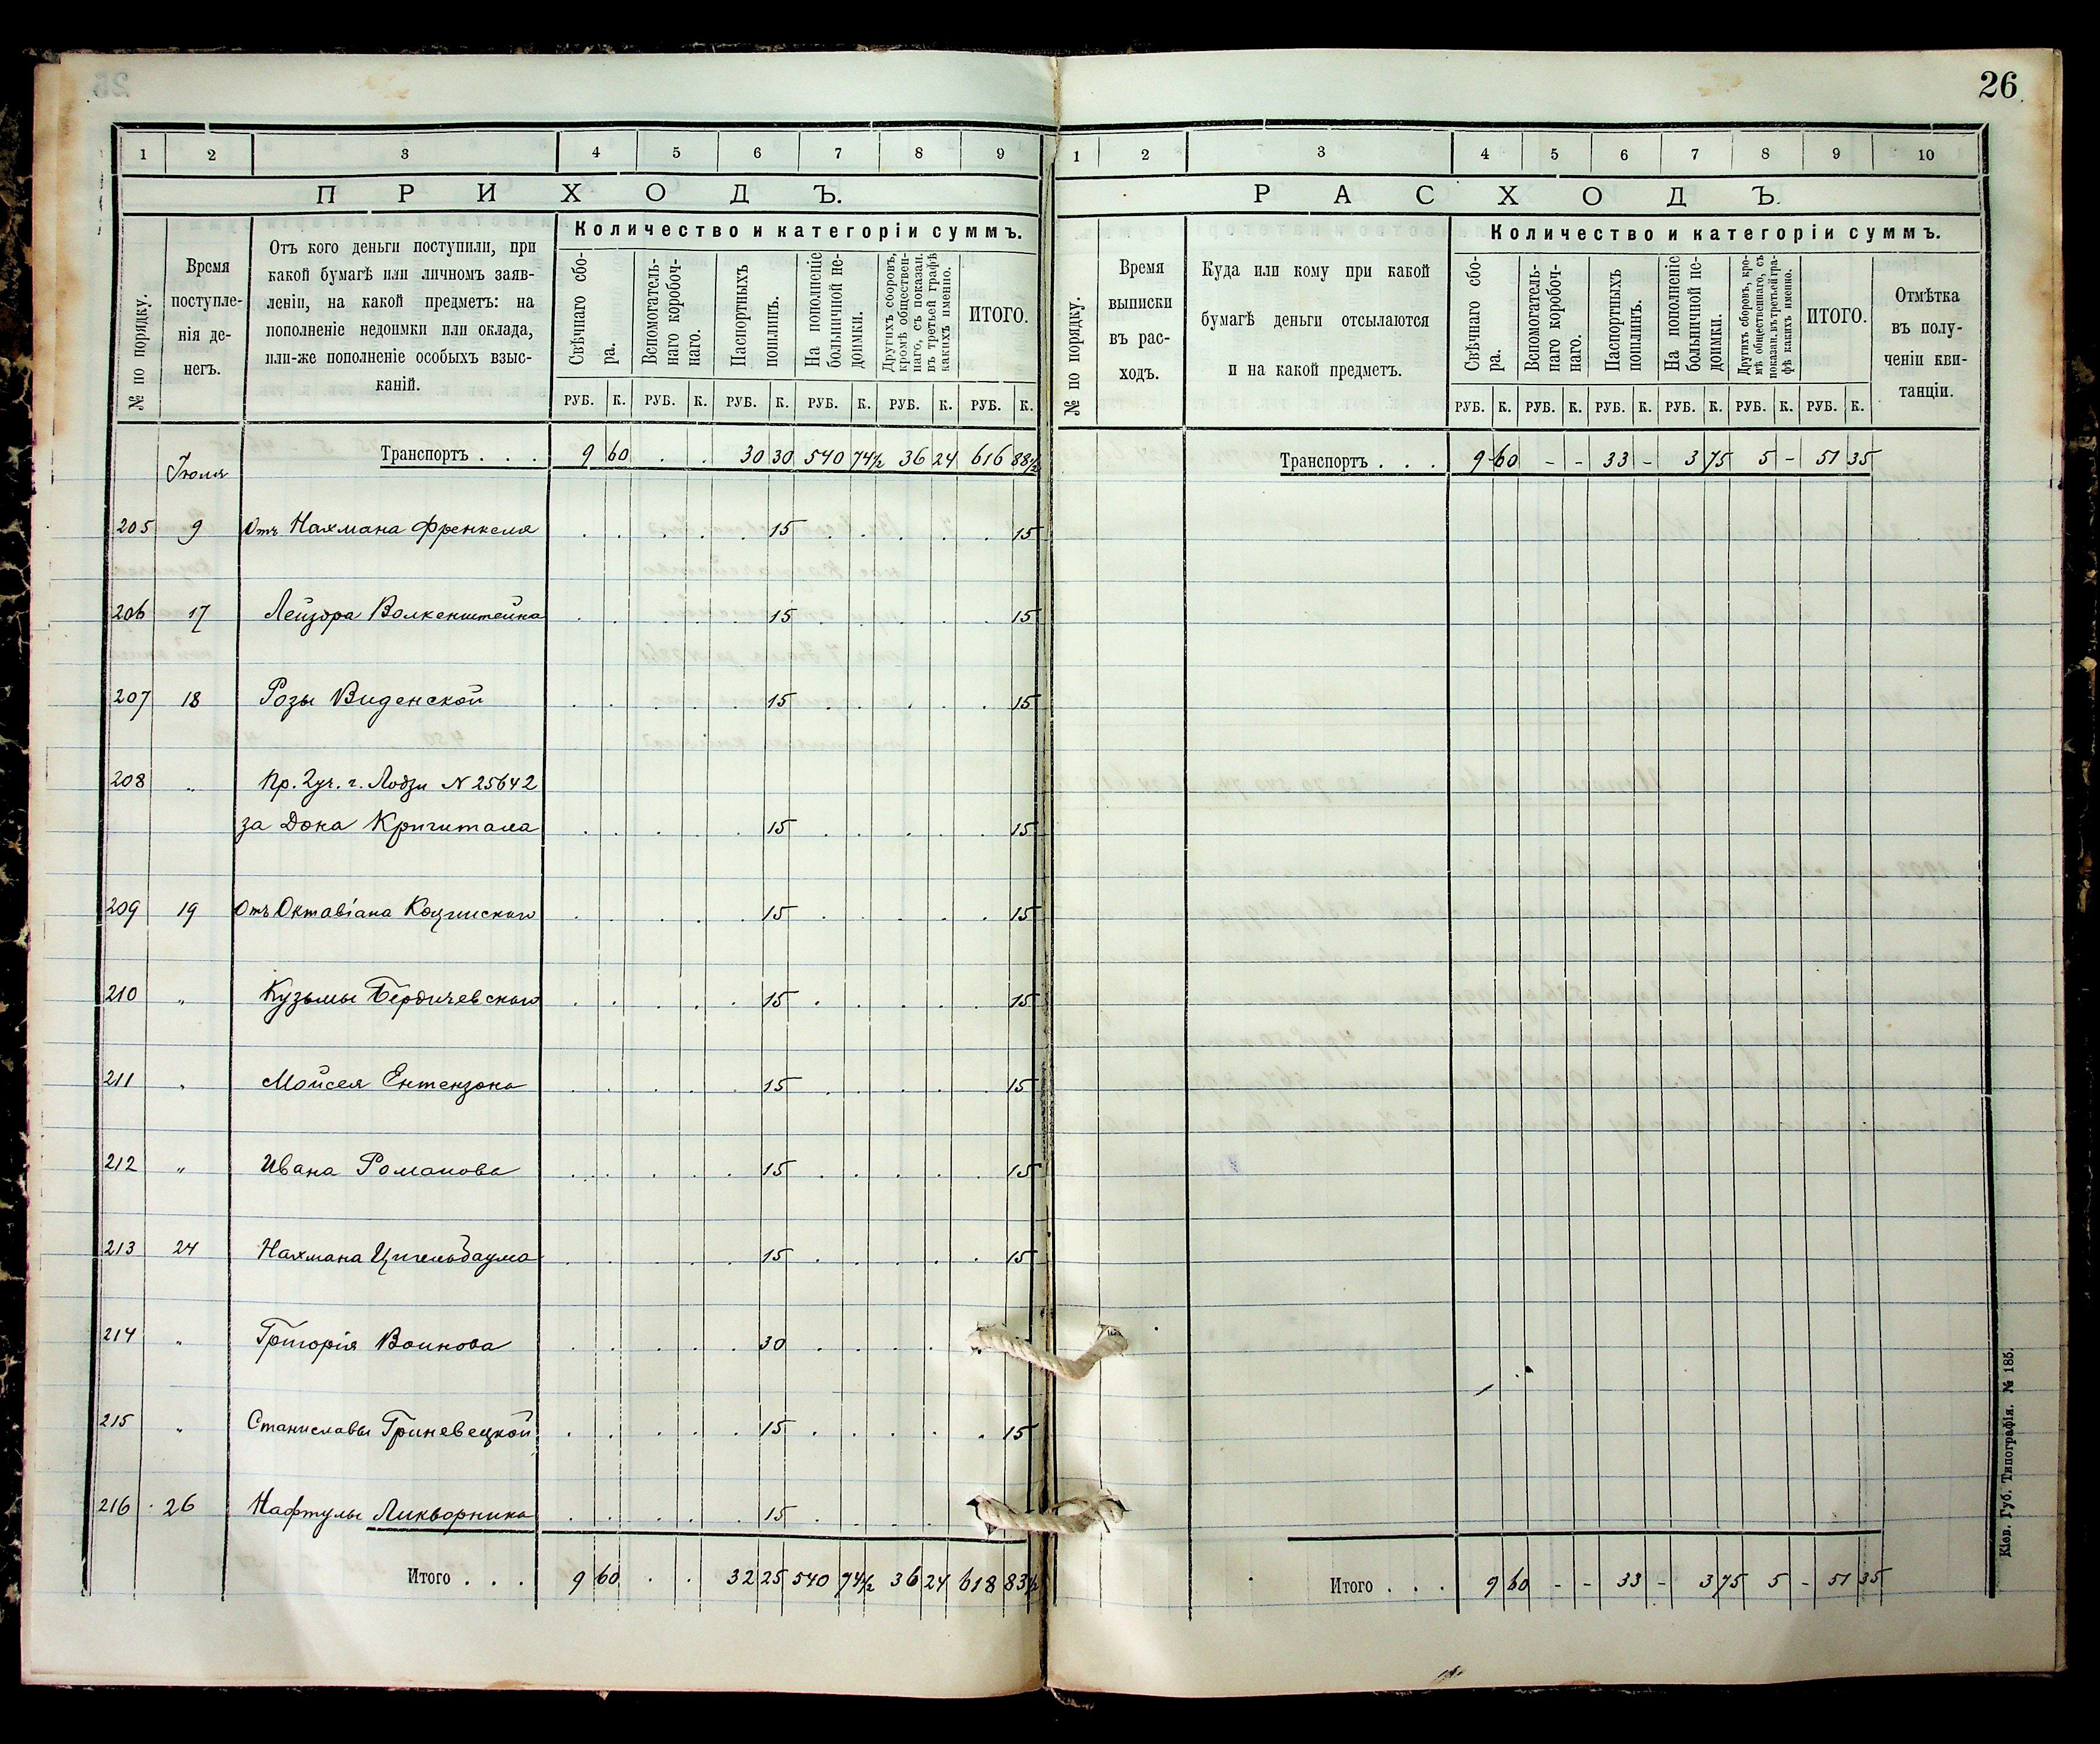 26
1 2 3 4 5 6 7 8 9
ПРИХОДЪ.
№ по порядку.
Время поступле-
нія де-
негъ.
Отъ кого деньги поступили, при
какой бумагѣ или личномъ заяв-
леніи, на какой предметъ: на
пополненіе недоимки или оклада,
или-же пополненіе особыхъ взыс-
каній.
Количество и категоріи суммъ.
Свѣчнаго сбо-
ра.
Вспомогатель-
наго коробоч-
наго.
Паспортныхъ
пошлинъ.
На пополненіе
больничной не-
доимки.
Другихъ сборовъ,
кромѣ обществен-
наго, съ показан.
въ третьей графѣ
какихъ именно.
ИТОГО.
РУБ. К. РУБ. К. РУБ. К. РУБ. К. РУБ. К. РУБ. К.
Транспортъ . . . 9 60 . . 30 30 540 74½ 36 24 616 88½
Іюля
205 9 Отъ Нахмана Френкеля 15 15
206 17 Лейзора Волкенштейна 15 15
207 18 Розы Виденской 15 15
208 " Пр. 2 уч. г. Лодзи N 25642
за Дока 15 15
209 19 Отъ Октавіана 15 15
210 " Кузьмы Бердичевскаго 15 15
211 " Мойсея Ентензона 15 15
212 " Ивана Романова 15 15
213 24 Нахмана Цигельбаума 15 15
214 " Григорія Воинова 30
215 " Станиславы Гриневецкой 15 15
216 26 Нафтулы Ликворника 15
Итого . . . 9 60 . . 32 25 540 74½ 36 24 618 83½
1 2 3 4 5 6 7 8 9 10
РАСХОДЪ.
№ по порядку.
Время
выписки
въ рас-
ходъ.
Куда или кому при какой
бумагѣ деньги отсылаются
и на какой предметъ.
Количество и категоріи суммъ.
Свѣчнаго сбо-
ра.
Вспомогатель-
наго коробоч-
наго.
Паспортныхъ
пошлинъ.
На пополненіе
больничной не-
доимки.
Другихъ сборовъ, кро-
мѣ общественнаго, съ
показан. въ третьей гра-
фѣ какихъ именно.
ИТОГО.
Отмѣтка
въ полу-
ченіи кви-
танціи.
РУБ. К. РУБ. К. РУБ. К. РУБ. К. РУБ. К. РУБ. К.
Транспортъ . . . 9 60 - - 33 - 3 75 5 - 51 35
Итого . . . 9 60 - - 33 - 3 75 5 - 51 35
Кіев. Губ. Типографія. № 185.